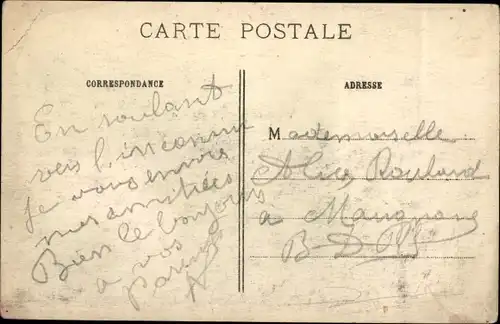 CARTE POSTALE
CORRESPONDANCE
En roulant
vers l'inconnu
je vous envoie
mes amitiés
Bien le bonjour
a vos
parents
ADRESSE
Mademoiselle
Alice
a